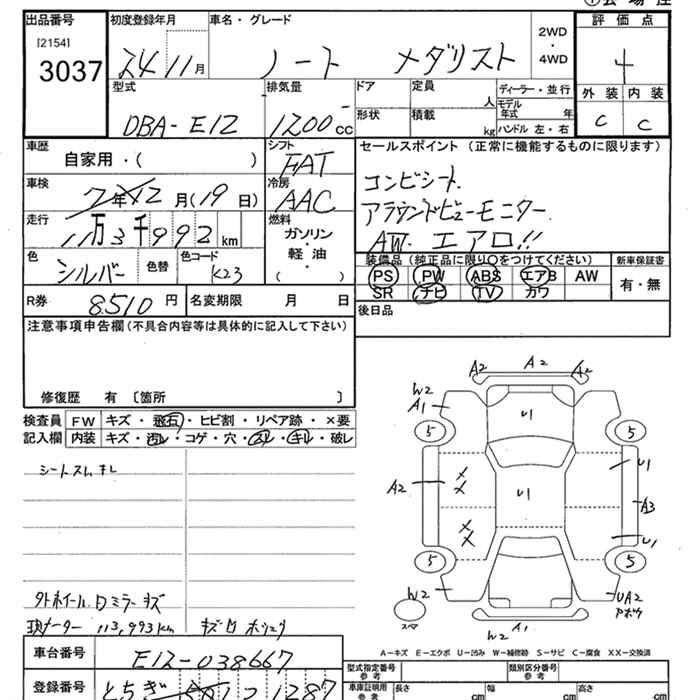 出品番号 初度登録年月 車名・グレード 2WD ・ 4WD 評価点
[2154] 3037 24 11月 ノート メダリスト 4
型式 排気量 ドア 定員 人 ディーラー・並行 外装 内装
DBA-E12 1200cc 形状 積載 kg モデル年式 年 C C
ハンドル 左・右
車歴 自家用・( ) シフト FAT セールスポイント (正常に機能するものに限ります)
車検 7年12月(19日) 冷房 AAC コンビシート.
走行 11万3千992km 燃料 ガソリン・軽油・( ) アラウンドビューモニター.
AW. エアロ!!
色 シルバー 色替 色コード K23 装備品(純正品に限り○をつけてください) 新車保証書
PS PW ABS エアB AW 有・無
R券 8510円 名変期限 月 日 SR ナビ TV カワ
注意事項申告欄(不具合内容等は具体的に記入して下さい) 後日品
修復歴 有 〔箇所 〕
検査員 FW キズ・飛石・ヒビ割・リペア跡・×要
記入欄 内装 キズ・汚レ・コゲ・穴・スレ・キレ・破レ
シートスレ、キレ
A2 A2 A2
W2
A1 U1
5 5
U1
A2 U1 A3
U1
5 5
W2 UA2
スマ A1
W2
外ホイール、ミラーキズ
現メーター 113,993km
A－キズ E－エクボ U－凹み W－補修跡 S－サビ C－腐食 XX－交換済
車台番号 E12-038667 型式指定番号 参考 類別区分番号 参考
登録番号 とちぎ 501 1287 車庫証明用 参考 長さ cm 幅 cm 高さ cm